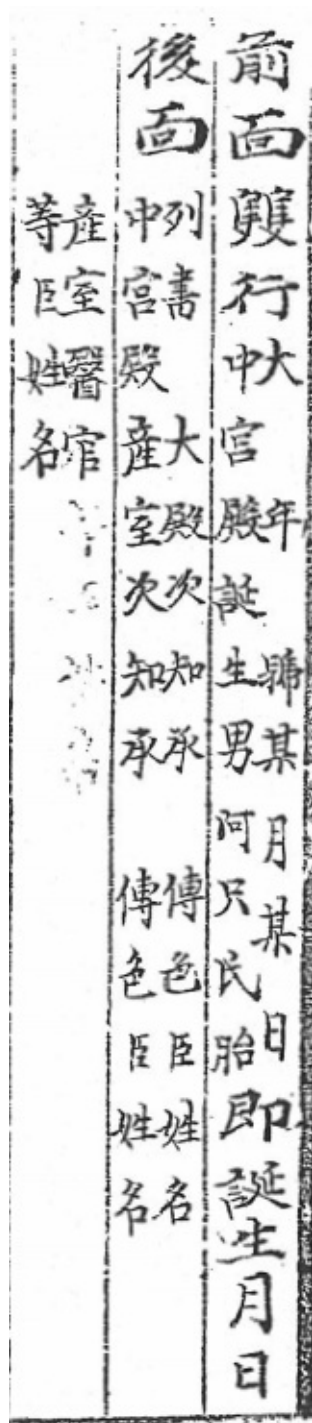 前面雙行
大年號某月某日
中宮殿誕生男阿只氏胎
即誕生月日
後面
列書大殿次知承傳色臣姓名
中宮殿產室次知承傳色臣姓名
產室醫官
等臣姓名